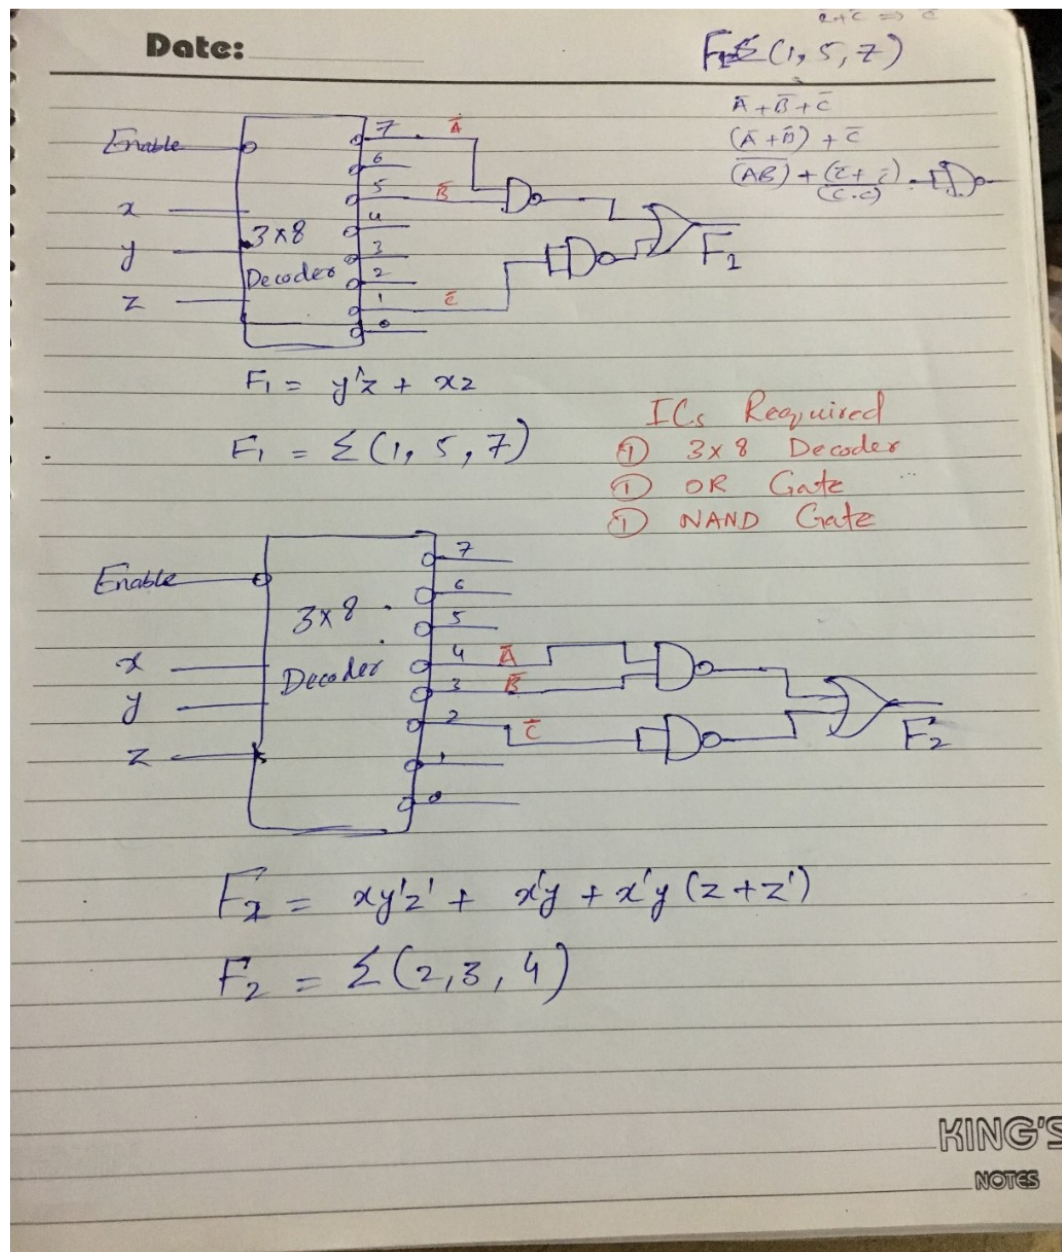 Date:
F₁ Σ (1, 5, 7)
Ā + B̄ + C̄
(Ā + B̄) + C̄
(A̅B̅) + (C̄ + C̄)
(C.C)
Enable
x
y
z
3x8
Decoder
7 Ā
6
5 B̄
4
3
2
1 C̄
0
F₁
F₁ = y'z + xz
F₁ = Σ (1, 5, 7)
ICs Required
① 3x8 Decoder
① OR Gate
① NAND Gate
Enable
x
y
z
3x8
Decoder
7
6
5
4 Ā
3 B̄
2 C̄
1
0
F₂
F₂ = xy'z' + x'y + x'y (z+z')
F₂ = Σ (2,3,4)
KING'S
NOTES